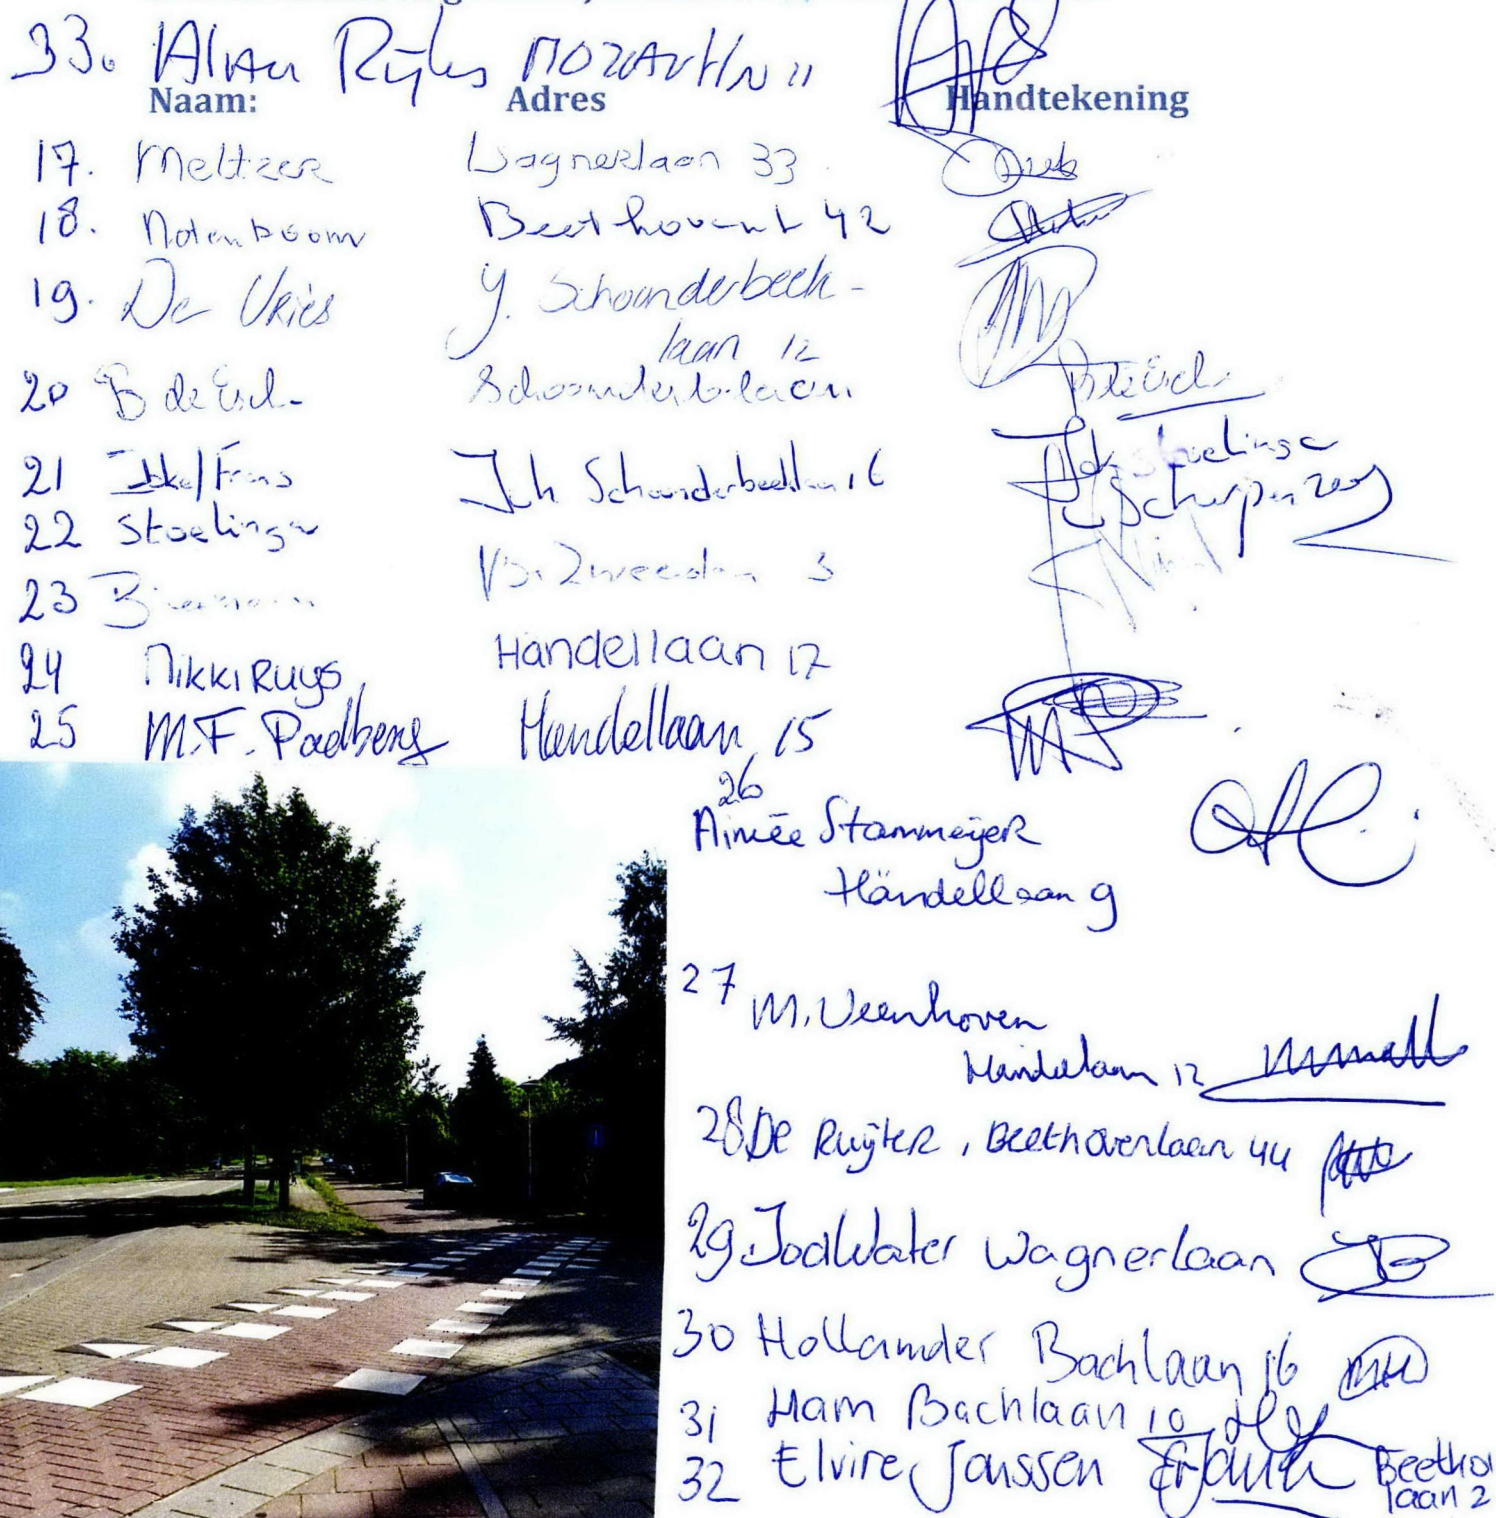 33. AlVau Rijks MOZARTLN 11
Naam: Adres Handtekening
17. Meltzer Wagnerlaan 33
18. Notenboom Beethovenl 42
19. De Vries J. Schoonderbeek-
laan 12
20 B de Esch Schoonderb.laan
21 Frans Joh Schoonderbeeklaan 16
22 Stoelinga
Stoelinga
Scherpenzeel
23 3
24 Nikki Ruys Handellaan 17
25 M.F. Padberg Handellaan 15
26
Aimée Stammeijer
Händellaan 9
27 M. Veenhoven
Händelaan 12
28 De Ruijter, Beethovenlaan 44
29. Jodlbater Wagnerlaan
30 Hollander Bachlaan 16
31 Ham Bachlaan 10
32 Elvire Janssen Beetho
laan 2